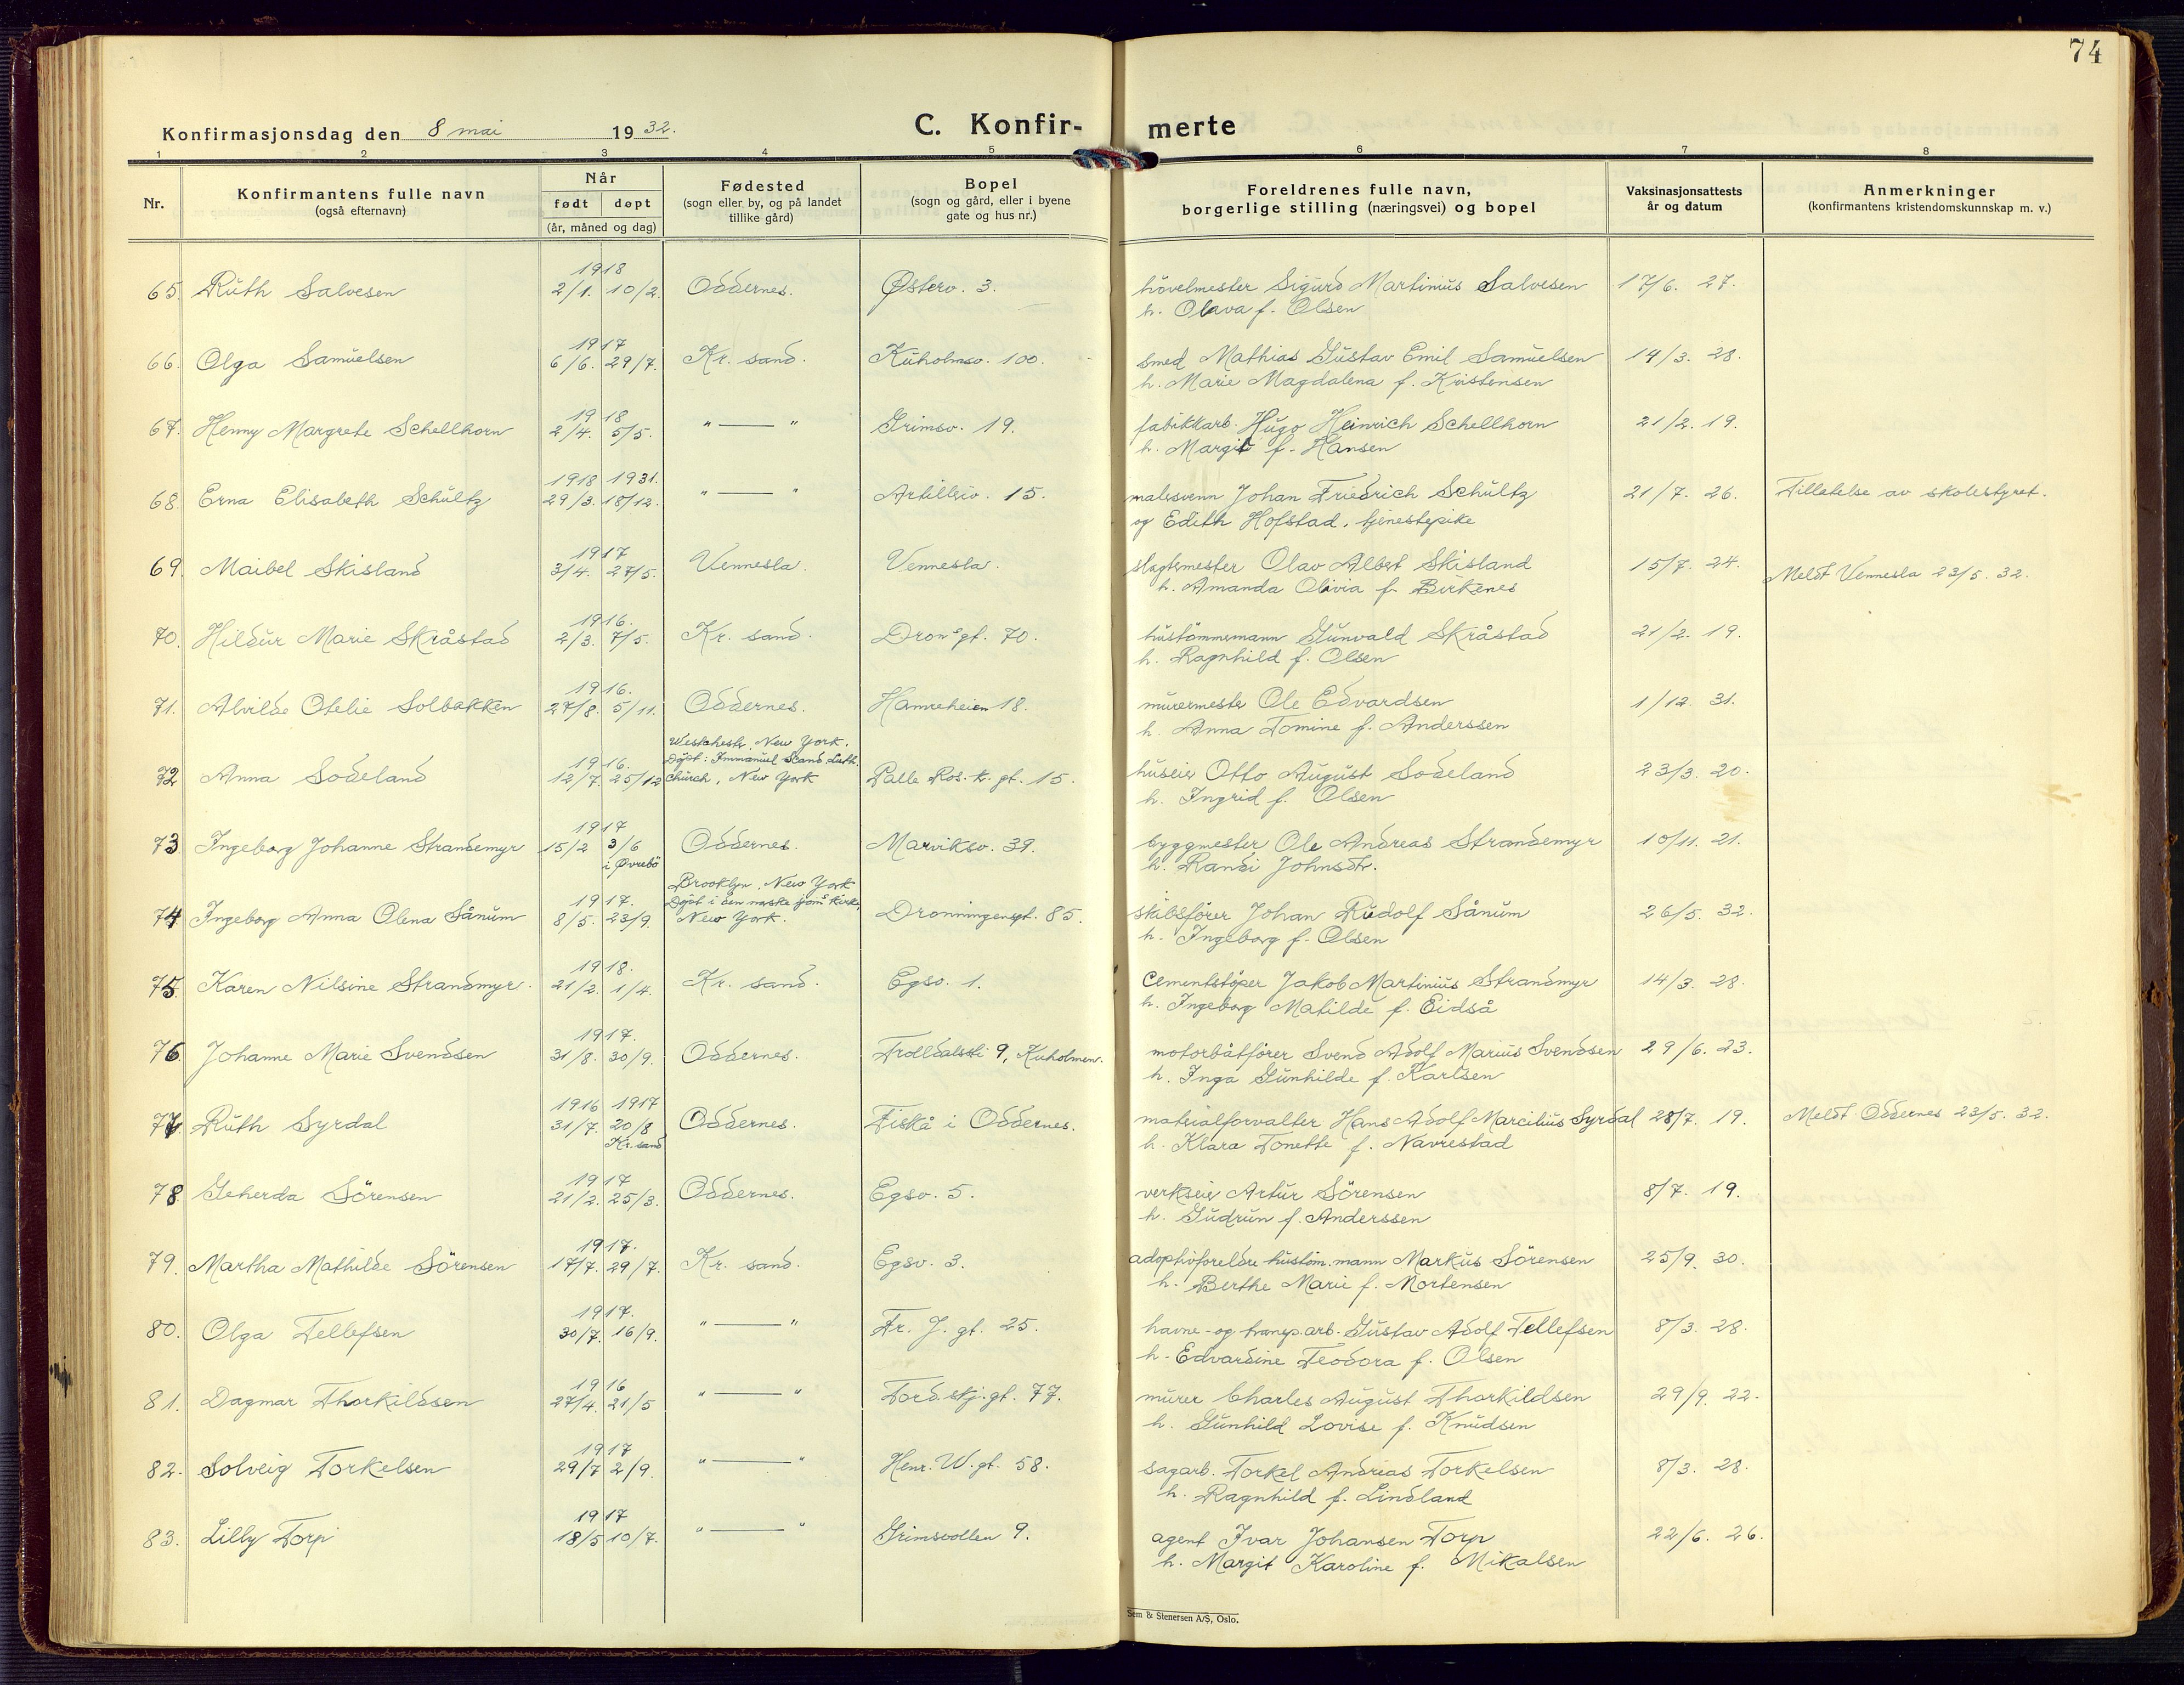 74
Konfirmasjonsdag den 8 mai 1932.
C. Konfir- merte
1 2 3 4 5 6 7 8
Nr.
Konfirmantens fulle navn
(også efternavn)
Når
født døpt
(år, måned og dag)
Fødested
(sogn eller by, og på landet
tillike gård)
Bopel
(sogn og gård, eller i byene
gate og hus nr.)
Foreldrenes fulle navn,
borgerlige stilling (næringsvei) og bopel
Vaksinasjonsattests
år og datum
Anmerkninger
(konfirmantens kristendomskunnskap m. v.)
1918
65. Ruth Salvesen 2/1. 10/2. Oddernes. Østerv. 3. hovelmester Sigurd Martinius Salvesen 17/6. 27.
h. Olava f. Olsen
1917
66. Olga Samuelsen 6/6. 29/7. Kr. sand. Kuholmsv. 100. smed Mathias Gustav Emil Samuelsen 14/3. 28.
h. Marie Magdalena f. Kristensen
1918
67. Henny Margrete Schellhorn 2/4. 5/5. " — " Grimsv. 19. fabrikkarb. Hugo Heinrich Schellhorn 21/2. 19.
h. Margit f. Hansen
1918 1931.
68. Erna Elisabeth Schultz 29/3. 18/12. " — " Artilleriv. 15. malersvenn Johan Friedrich Schultz 21/7. 26. Tillatelse av skolestyret.
og Edith Hofstad, tjenestepike
1917
69. Maibel Skisland 3/4. 27/5. Vennesla. Vennesla. slagtermester Olav Albert Skisland 15/7. 24. Meldt Vennesla 23/5. 32.
h. Amanda Olivia f. Birkenes
1916.
70. Hildur Marie Skråstad 2/3. 7/5. Kr. sand. Drons gt. 70. hustömmermann Gunvald Skråstad 21/2. 19.
h. Ragnhild f. Olsen
1916.
71. Alvilde Otelie Solbakken 27/8. 5/11. Oddernes. Hamreheien 18. murermester Ole Edvardsen 1/12. 31.
h. Anna Tomine f. Anderssen
Westchester, New York.
1916. Døpt: Immanuel Scand. Luth.
72 Anna Sodeland 12/7. 25/12 Church, New York Palle Ros. k. gt. 15. huseier Otto August Sodeland 23/3. 20.
h. Ingrid f. Olsen
1917
73 Ingeborg Johanne Strandemyr 15/2 3/6 Oddernes. Marviksv. 39. byggmester Ole Andreas Strandemyr 10/11. 21.
i Øvrebö h. Randi Johnsdtr.
Brooklyn, New York
1917. Døpt i den norske sjøm. kirke,
74 Ingeborg Anna Olena Sånum 8/5. 23/9. New York. Dronningensgt. 85. skibsförer Johan Rudolf Sånum 26/5. 32.
h. Ingeborg f. Olsen
1918.
75. Karen Nilsine Strandmyr. 21/2. 1/4. Kr. sand. Egsv. 1. Cementstöper Jakob Martinius Strandmyr 14/3. 28.
h. Ingeborg Matilde f. Eidså
1917.
76 Johanne Marie Svendsen 31/8. 30/9. Oddernes. Trolldalskli 9, Kuholmen. motorbåtförer Svend Adolf Marius Svendsen 29/6. 23.
h. Inga Gunhilde f. Karlsen
1916 1917
77. Ruth Syrdal 31/7. 20/8 Oddernes. Fiskå i Oddernes. materialforvalter Hans Adolf Marcilius Syrdal 28/7. 19. Meldt Oddernes 23/5. 32.
Kr. sand h. Klara Tonette f. Navrestad
1917
78 Geherda Sörensen 21/2. 25/3. Oddernes. Egsv. 5. verkseier Artur Sörensen 8/7. 19.
h. Gudrun f. Anderssen
1917.
79. Martha Mathilde Sörensen 17/7. 29/7. Kr. sand. Egsv. 3. adoptivforeldre hustöm.mann Markus Sörensen 25/9. 30.
h. Berthe Marie f. Mortensen
1917.
80. Olga Tellefsen 30/7. 16/9. " — " Fr. J. gt. 25. havne- og transp. arb. Gustav Adolf Tellefsen 8/3. 28.
h. Edvardine Teodora f. Olsen
1916
81. Dagmar Thorkildsen 27/4. 21/5 " — " Tord. skj. gt. 77. murer Charles August Thorkildsen 29/9. 22.
h. Gunhild Lovise f. Knudsen
1917
82. Solveig Torkelsen 29/7 2/9. " — " Henr. W. gt. 58. sagarb. Torkel Andreas Torkelsen 8/3. 28.
h. Ragnhild f. Lindland
1917
83. Lilly Torp 18/5 10/7. " — " Grimsvollen 9. agent Ivar Johansen Torp 22/6. 26.
h. Margit Karoline f. Mikalsen
Sem & Stenersen A/S, Oslo.